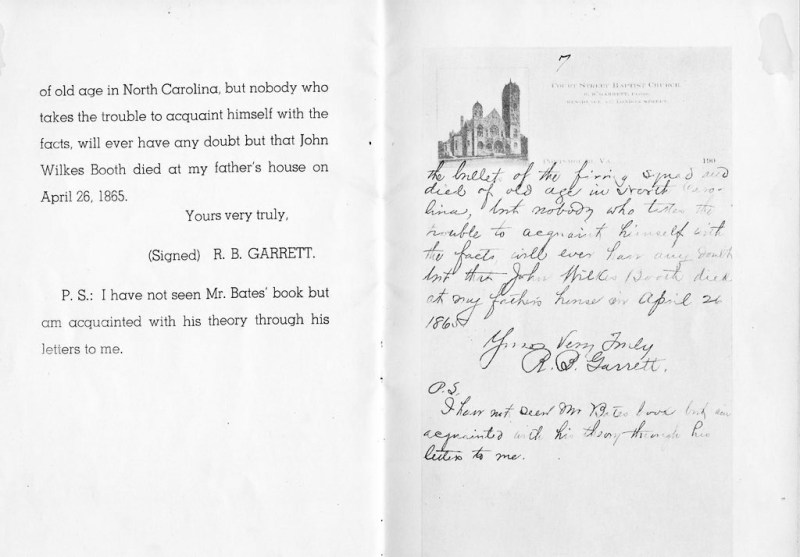 of old age in North Carolina, but nobody who
takes the trouble to acquaint himself with the
facts, will ever have any doubt but that John
Wilkes Booth died at my father's house on
April 26, 1865.
Yours very truly,
(Signed) R. B. GARRETT.
P. S.: I have not seen Mr. Bates' book but
am acquainted with his theory through his
letters to me.
7
COURT STREET BAPTIST CHURCH
190
the bullets of the firing squad and
died of old age in North Caro-
lina, but nobody who takes the
trouble to acquaint himself with
the facts will ever have any doubt
but that John Wilkes Booth died
at my fathers house on April 26
1865
Yours Very Truly
R. B. Garrett.
P.S.
I have not seen Mr Bates book but am
acquainted with his theory through his
letters to me.